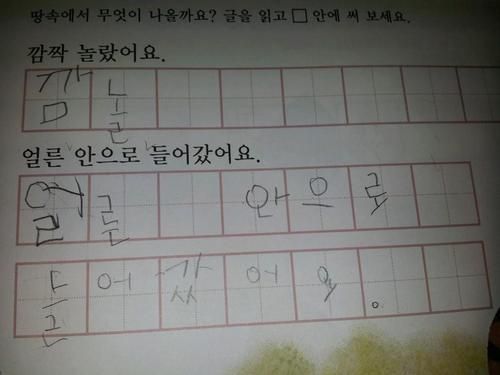 땅속에서 무엇이 나올까요? 글을 읽고 □ 안에 써 보세요.
깜짝 놀랐어요.
깜 놀
얼른 안으로 들어갔어요.
얼른 안으로
들어갔어요.